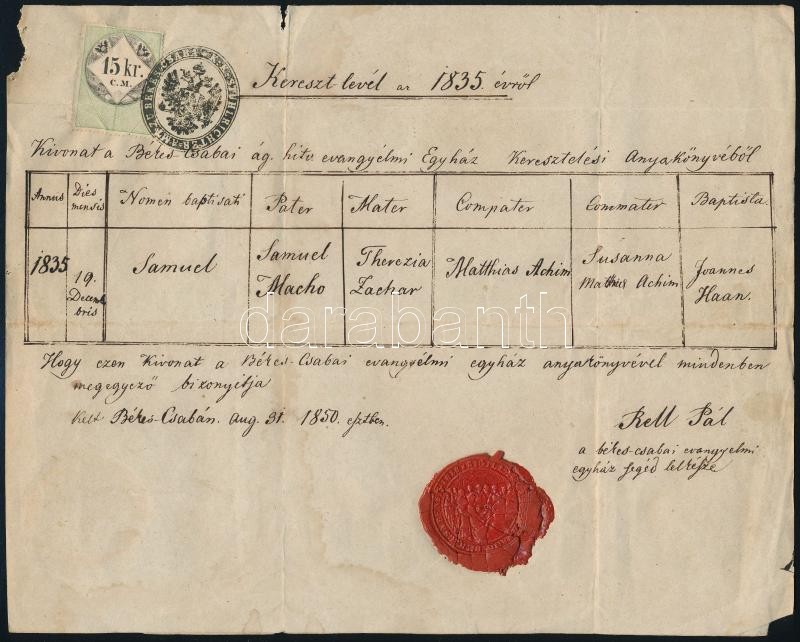 15 kr.
C.M.
Kereszt levél az 1835. évről
Kivonat a Békés-Csabai ág. hitv. evangyélmi Egyház Keresztelési Anyakönyvéből
Annus Dies mensis Nomen baptisati Pater Mater Compater Commater Baptista
1835 19. Decembris Samuel Samuel Macho Therezia Zachar Matthias Achim Susanna Mathias Achim Joannes Haan.
darabanth
Hogy ezen Kivonat a Békés-Csabai evangyélmi egyház anyakönyvével mindenben
megegyező bizonyítja
Kelt Békés-Csabán. aug. 31. 1850. esztben.
Rell Pál
a békés-csabai evangyelmi
egyház segéd lelkésze